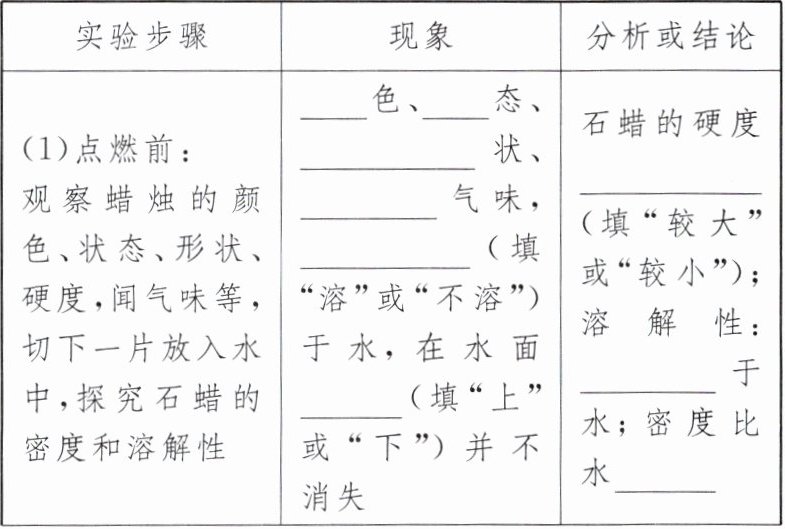 实验步骤
现象
分析或结论
(1)点燃前：
观察蜡烛的颜
色、状态、形状、
硬度,闻气味等,
切下一片放入水
中,探究石蜡的
密度和溶解性
____色、____态、
__________状、
________气味,
__________(填
“溶”或“不溶”)
于水,在水面
______(填“上”
或“下”)并不
消失
石蜡的硬度
__________
(填“较大”
或“较小”);
溶解性:
________于
水;密度比
水______